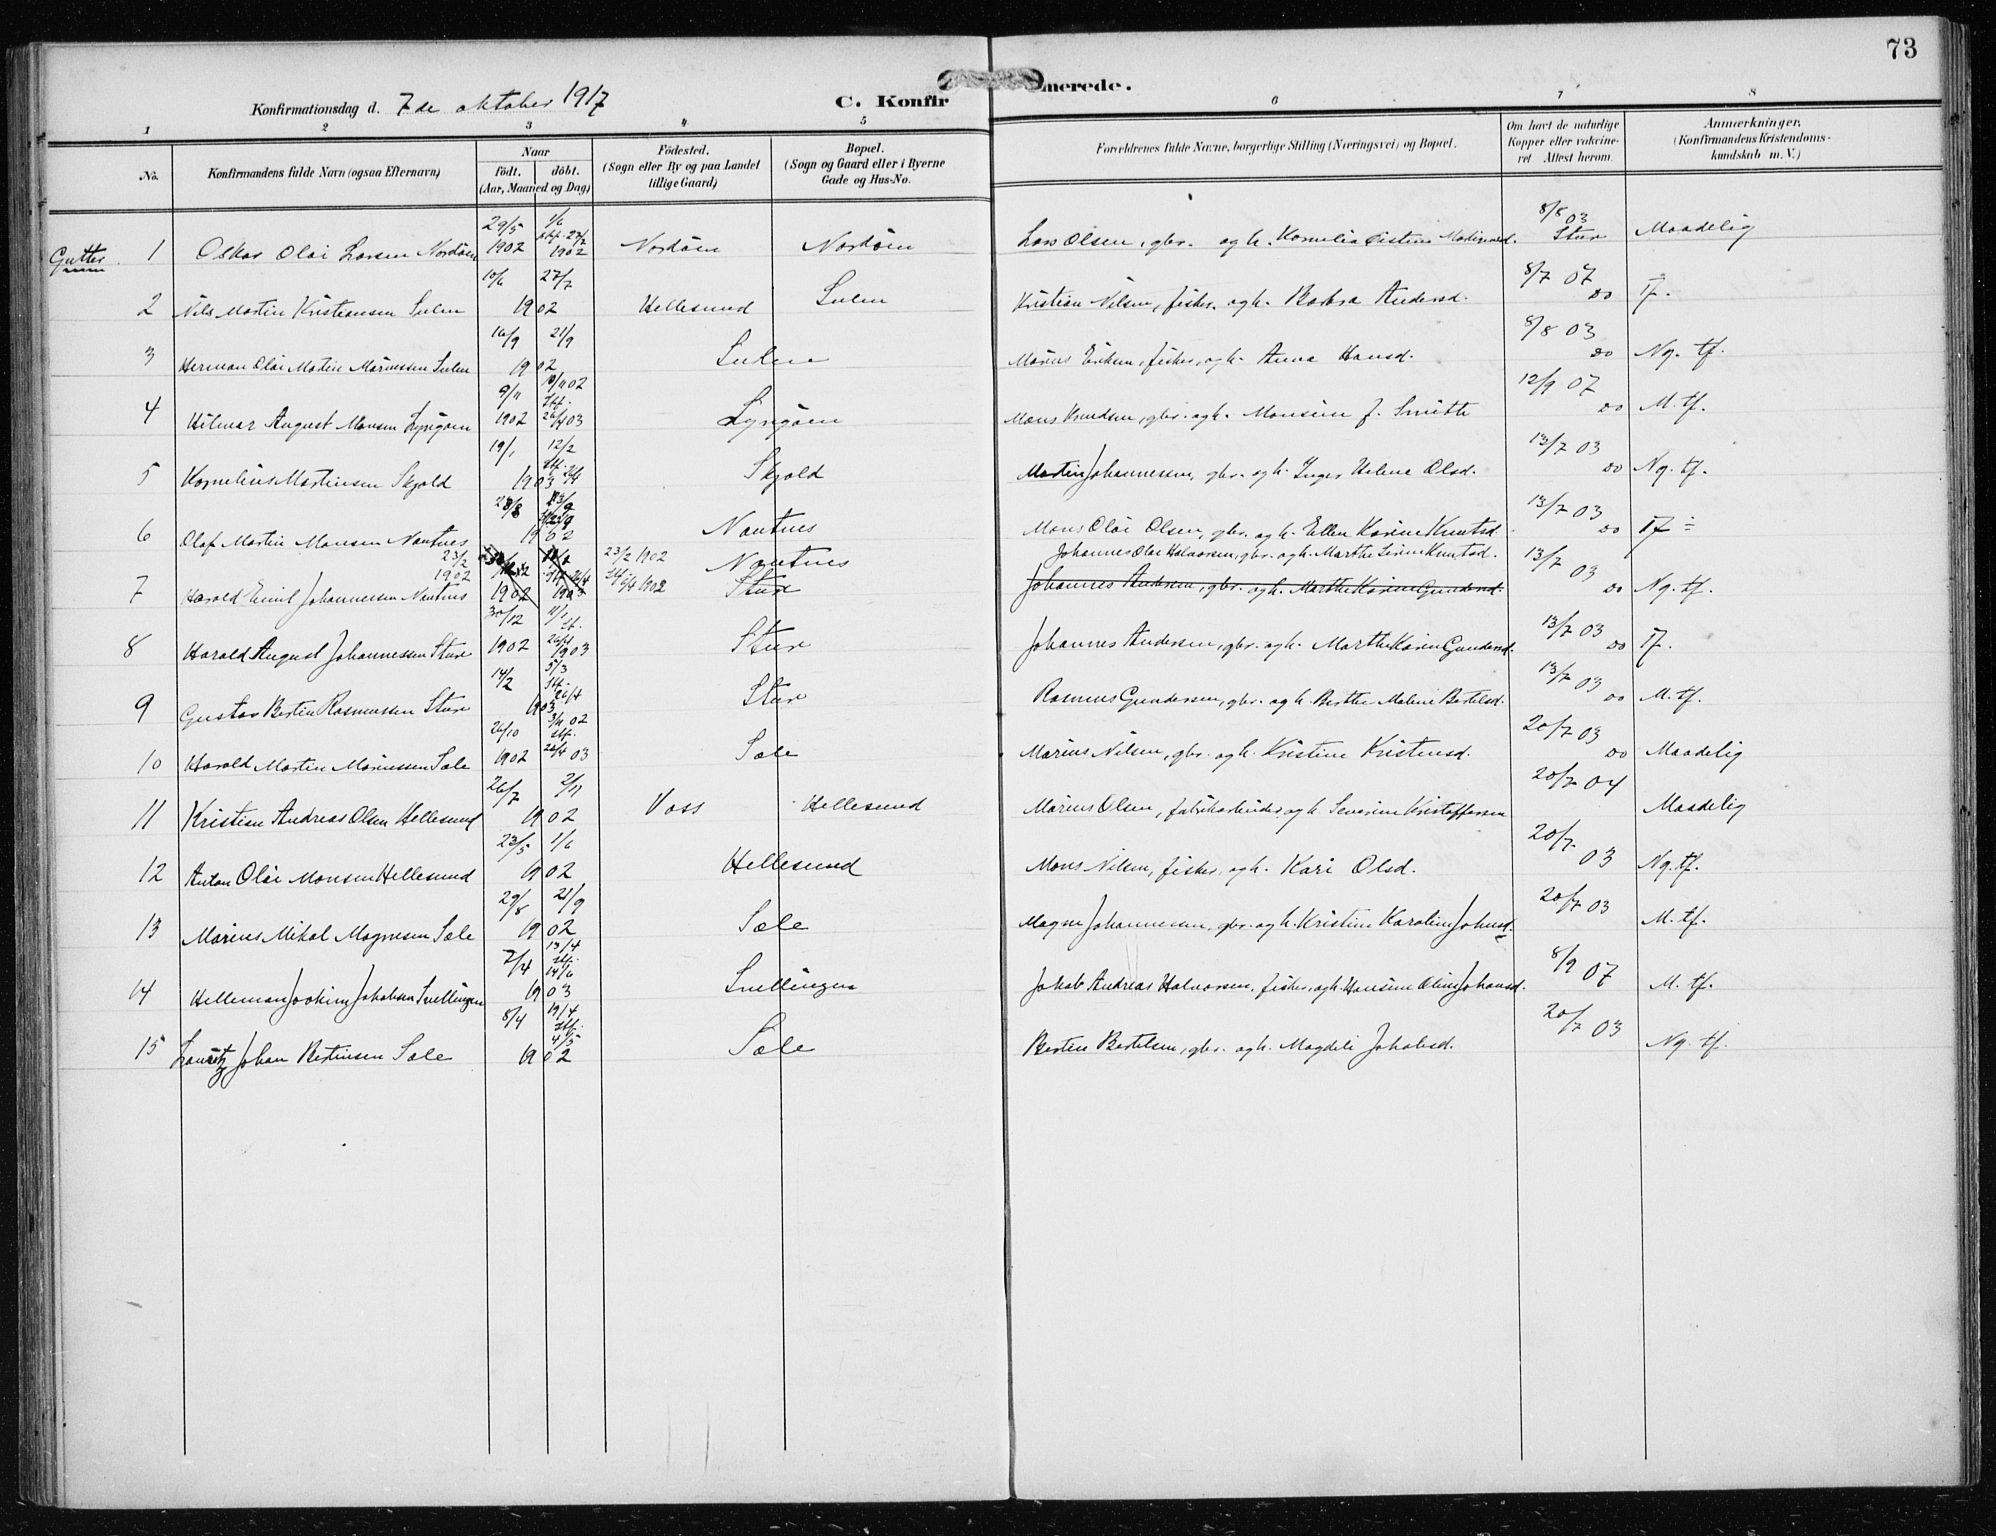 73
Konfirmationsdag d. 7de oktober 1917
C. Konfirmerede.
1 2 3 4 5 6 7 8
No. Konfirmandens fulde Navn (ogsaa Efternavn)
Naar
födt. döbt.
(Aar, Maaned og Dag)
Födested.
(Sogn eller By og paa Landet
tillige Gaard)
Bopæl.
(Sogn og Gaard eller i Byerne
Gade og Hus-No.
Forældrenes fulde Navne, borgerlige Stilling (Næringsvei) og Bopæl.
Om havt de naturlige
Kopper eller vakcine-
ret Attest herom.
Anmærkninger,
(Konfirmandens Kristendoms-
kundskab m. V.)
Gutter
1 Oskar Olai Larsen Nordöen 29/5 1902 1/6 stf. 27/7 1902 Nordöen Nordöen Lars Olsen, gbr. og h. Kornelia Martinsd. 8/8 03 Stur Maadelig
2 Nils Martin Kristiansen Sulen 10/6 27/7 1902 Hellesund Sulen Kristian Nilsen, fisker og h. Barbra Andersd. 8/7 07 do Tf.
3 Herman Olai Martin Mariussen Sulen 16/9 21/9 1902 Sulen Marius Eriksen, fisker, og h. Anna Hansd. 8/8 03 do Ng. tf.
4 Hilmar August Monsen Lyngöen 9/11 1902 10/11 02 Stf. 26/4 03 Lyngöen Mons Knudsen, gbr. og h. Monsine J. Smith 12/9 07 do M. tf.
5 Kornelius Martinsen Skjold 19/1 12/2 Stf. 26/4 1903 Skjold Martin Johannessen, gbr. og h. Inger Helena Olsd. 13/7 03 do Ng. tf.
6 Olaf Martin Monsen Nautnes 28/8 1902 Nautnes Mons Olai Olsen, gbr. og h. Ellen Karine Knutsd. 13/7 03 do Tf ÷
7 Harald Emil Johannessen Nautnes 23/2 1902 1902 1903 23/2 1902 Stf 6/4 1902 Nautnes Sture Johannes Olai Halvorsen, gbr. og h. Marthe Serine Knutsd. 13/7 03 do Ng. tf.
Johannes Andersen, gbr. og h. Marthe Karine Gundersd.
8 Harald August Johannessen Sture 30/12 1902 11/1 st. 26/4 1903 Stur Johannes Andersen, gbr. og h. Marthe Karine Gundersd. 13/7 03 do Tf.
9 Gustav Bertin Rasmussen Sture 14/2 5/3 Stf. 26/4 1903 Stur Rasmus Gundersen, gbr. og h. Berthe Malene Bertelsd. 13/7 03 do M. tf.
10 Harald Martin Mariussen Sæle 26/10 1902 3/11 02 stf. 26/4 03 Sæle Marius Nilsen, gbr. og h. Kristine Kristensd. 20/7 03 do Maadelig
11 Kristian Andreas Olsen Hellesund 26/7 2/11 1902 Voss Hellesund Marius Olsen, fabrikarbeider og h. Severine Kristoffersen 20/7 04 Maadelig
12 Anton Olai Monsen Hellesund 23/5 1/6 1902 Hellesund Mons Nilsen, fisker, og h. Kari Olsd. 20/7 03 Ng. tf.
13 Marius Mikal Magnesen Sæle 29/8 21/9 1902 Sæle Magne Johannessen, gbr. og h. Kristine Karoline Johnsd. 20/7 03 M. tf.
14 Helleman Joakim Jakobsen Snellingen 7/4 13/4 stf. 14/6 1903 Snellingen Jakob Andreas Halvorsen, fisker, og h. Hansine Oline Johansd. 8/9 07 M. tf.
15 Lauritz Johan Bertinsen Sæle 8/4 19/4 Stf. 4/5 1902 Sæle Bertin Bertelsen, gbr. og h. Magdeli Jakobsd. 20/7 03 Ng. tf.